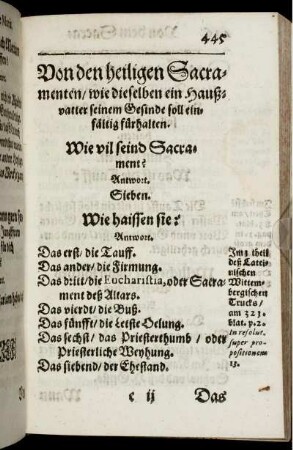 445
Von den heiligen Sacra-
menten / wie dieselben ein Hauß-
vatter seinem Gesinde soll ein-
fältig fürhalten.
Wie vil seind Sacra-
ment?
Antwort.
Sieben.
Wie haissen sie?
Antwort.
Das erst / die Tauff.
Das ander / die Firmung.
Das dritt / die Eucharistia, oder Sacra
ment deß Altars.
Das vierdt / die Buß.
Das fünfft / die Letste Oelung.
Das sechst / das Priesterthumb / oder
Priesterliche Weyhung.
Das siebend / der Ehestand.
Im 1 theil
deß Latei-
nischen
Wittem-
bergischen
Trucks /
am 323.
blat. p. 2.
in resolut.
super pro-
positionem
13.
c ij
Das